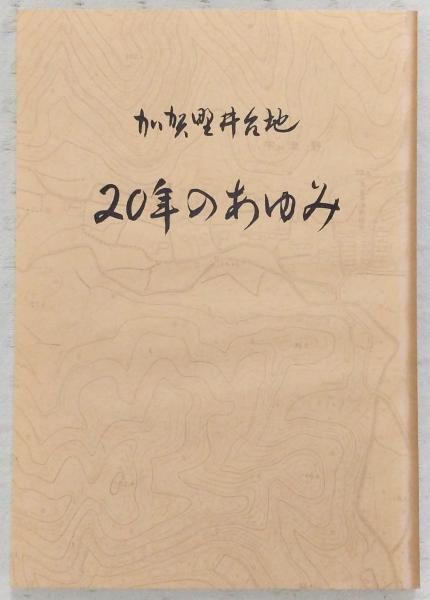 加賀野井台地
20年のあゆみ